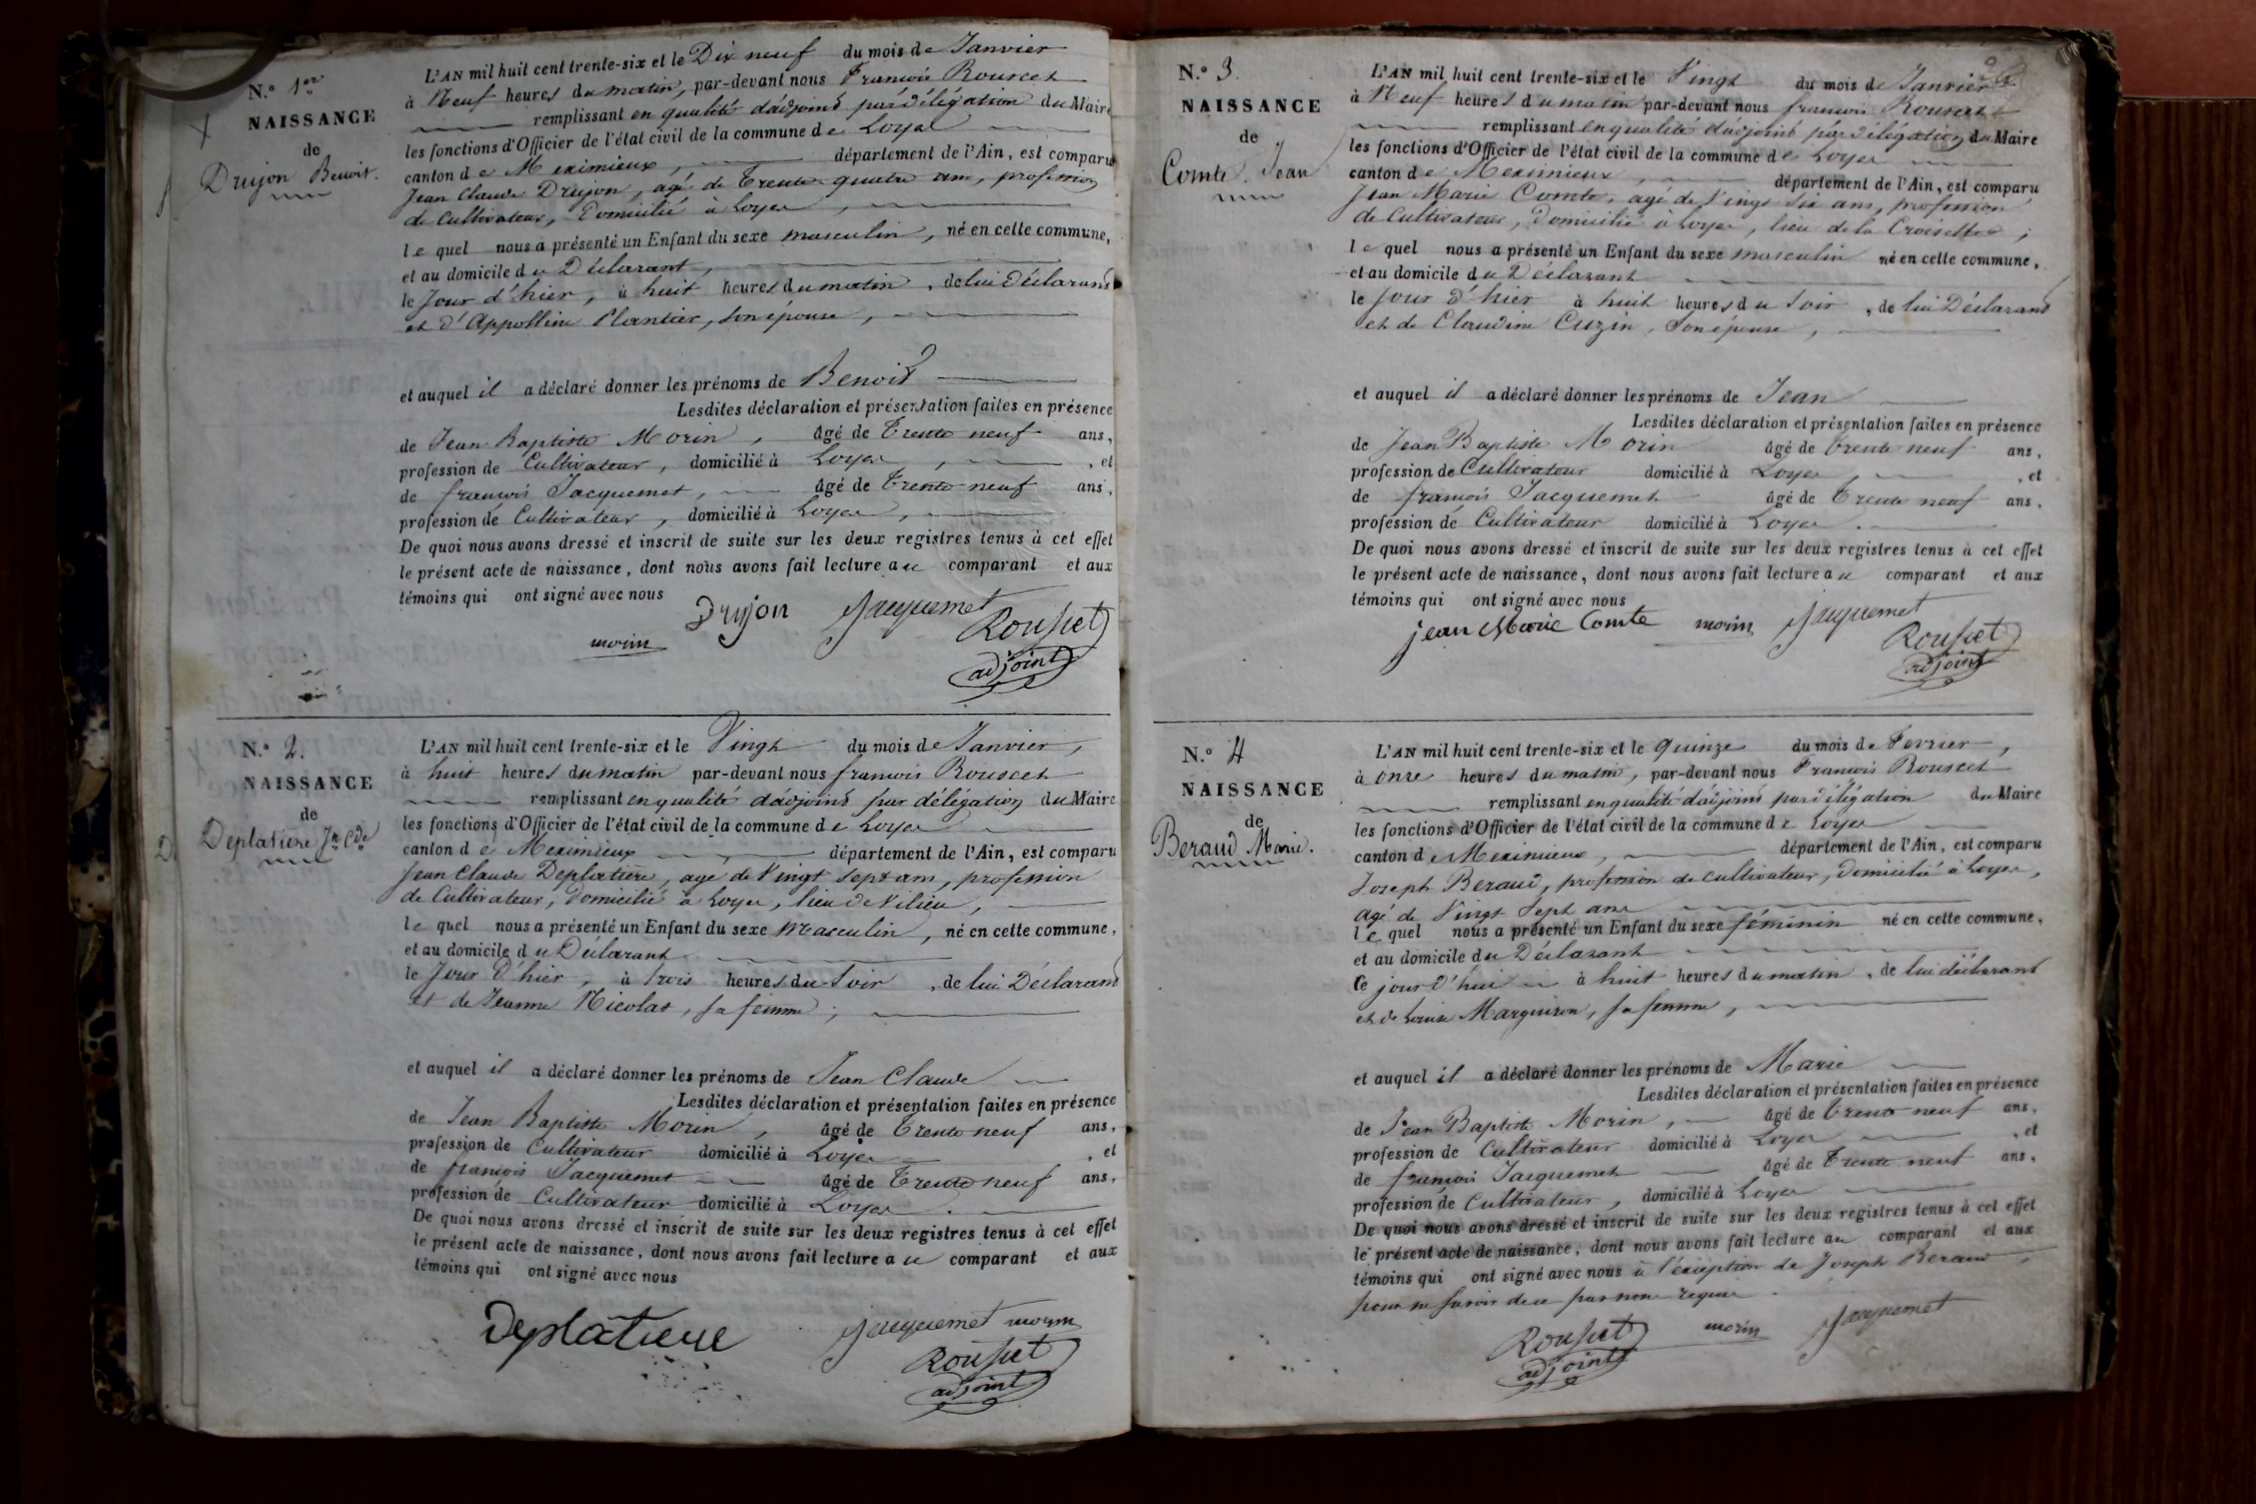 N.° 1er
NAISSANCE
de
Drujon Benoit.
L'AN mil huit cent trente-six et le Dix neuf du mois de Janvier
à Neuf heures du matin, par-devant nous François Rousset
remplissant en qualité d'adjoint par délégation du Maire
les fonctions d'Officier de l'état civil de la commune de Loyes
canton de Meximieux, département de l'Ain, est comparu
Jean Claude Drujon, agé de Trente quatre ans, profession
de Cultivateur, Domicilié à Loyes,
le quel nous a présenté un Enfant du sexe masculin, né en cette commune,
et au domicile du Déclarant,
le Jour d'hier, à huit heures du matin, de lui Déclarant
et d'Appolline Plantier, son épouse,
et auquel il a déclaré donner les prénoms de Benoit
Lesdites déclaration et présentation faites en présence
de Jean Baptiste Morin, âgé de Trente neuf ans,
profession de Cultivateur, domicilié à Loyes, et
de françois Jacquemet, âgé de Trente neuf ans,
profession de Cultivateur, domicilié à Loyes,
De quoi nous avons dressé et inscrit de suite sur les deux registres tenus à cet effet
le présent acte de naissance, dont nous avons fait lecture au comparant et aux
témoins qui ont signé avec nous
Drujon Jacquemet
morin Rousset
adjoint
N.° 2.
NAISSANCE
de
Deplatiere Jn Cde
L'AN mil huit cent trente-six et le Vingt du mois de Janvier,
à huit heures du matin par-devant nous françois Rousset
remplissant en qualité d'adjoint par délégation du Maire
les fonctions d'Officier de l'état civil de la commune de Loyes
canton de Meximieux, département de l'Ain, est comparu
Jean Claude Deplatière, agé de Vingt Sept ans, profession
de Cultivateur, Domicilié à Loyes, lieu de Vilieu,
le quel nous a présenté un Enfant du sexe Masculin, né en cette commune,
et au domicile du Déclarant
le Jour d'hier, à trois heures du Soir, de lui Déclarant
et de Jeanne Nicolas, sa femme;
et auquel il a déclaré donner les prénoms de Jean Claude
Lesdites déclaration et présentation faites en présence
de Jean Baptiste Morin, âgé de Trente neuf ans,
profession de Cultivateur domicilié à Loyes, et
de françois Jacquemet âgé de Trente neuf ans,
profession de Cultivateur domicilié à Loyes.
De quoi nous avons dressé et inscrit de suite sur les deux registres tenus à cet effet
le présent acte de naissance, dont nous avons fait lecture au comparant et aux
témoins qui ont signé avec nous
Deplatiere Jacquemet morin
Rousset
adjoint
N.° 3.
NAISSANCE
de
Comte Jean
L'AN mil huit cent trente-six et le Vingt du mois de Janvier
à Neuf heures du matin par-devant nous françois Rousset
remplissant en qualité d'adjoint par délégation du Maire
les fonctions d'Officier de l'état civil de la commune de Loyes
canton de Meximieux, département de l'Ain, est comparu
Jean Marie Comte, agé de Vingt Six ans, profession
de Cultivateur, Domicilié à Loyes, lieu de la Croisette;
le quel nous a présenté un Enfant du sexe masculin né en cette commune,
et au domicile du Déclarant
le Jour d'hier à huit heures du Soir, de lui Déclarant
et de Claudine Cuzin, Son épouse,
et auquel il a déclaré donner les prénoms de Jean
Lesdites déclaration et présentation faites en présence
de Jean Baptiste Morin âgé de Trente neuf ans,
profession de Cultivateur domicilié à Loyes, et
de françois Jacquemet âgé de Trente neuf ans,
profession de Cultivateur domicilié à Loyes.
De quoi nous avons dressé et inscrit de suite sur les deux registres tenus à cet effet
le présent acte de naissance, dont nous avons fait lecture au comparant et aux
témoins qui ont signé avec nous
jean Marie Comte morin Jacquemet
Rousset
adjoint
N.° 4
NAISSANCE
de
Beraud Marie.
L'AN mil huit cent trente-six et le quinze du mois de Fevrier,
à onze heures du matin, par-devant nous François Rousset
remplissant en qualité d'adjoint par délégation du Maire
les fonctions d'Officier de l'état civil de la commune de Loyes
canton de Meximieux, département de l'Ain, est comparu
Joseph Beraud, profession de cultivateur, Domicilié à Loyes,
agé de Vingt Sept ans
le quel nous a présenté un Enfant du sexe féminin né en cette commune,
et au domicile du Déclarant
Ce jour d'hui à huit heures du matin, de lui déclarant
et de Louise Marguiron, sa femme,
et auquel il a déclaré donner les prénoms de Marie
Lesdites déclaration et présentation faites en présence
de Jean Baptiste Morin, âgé de Trente neuf ans,
profession de Cultivateur domicilié à Loyes, et
de françois Jacquemet âgé de Trente neuf ans,
profession de Cultivateur, domicilié à Loyes
De quoi nous avons dressé et inscrit de suite sur les deux registres tenus à cet effet
le présent acte de naissance, dont nous avons fait lecture au comparant et aux
témoins qui ont signé avec nous à l'exception de Joseph Beraud,
pour ne savoir de ce par nous requis.
Rousset morin Jacquemet
adjoint